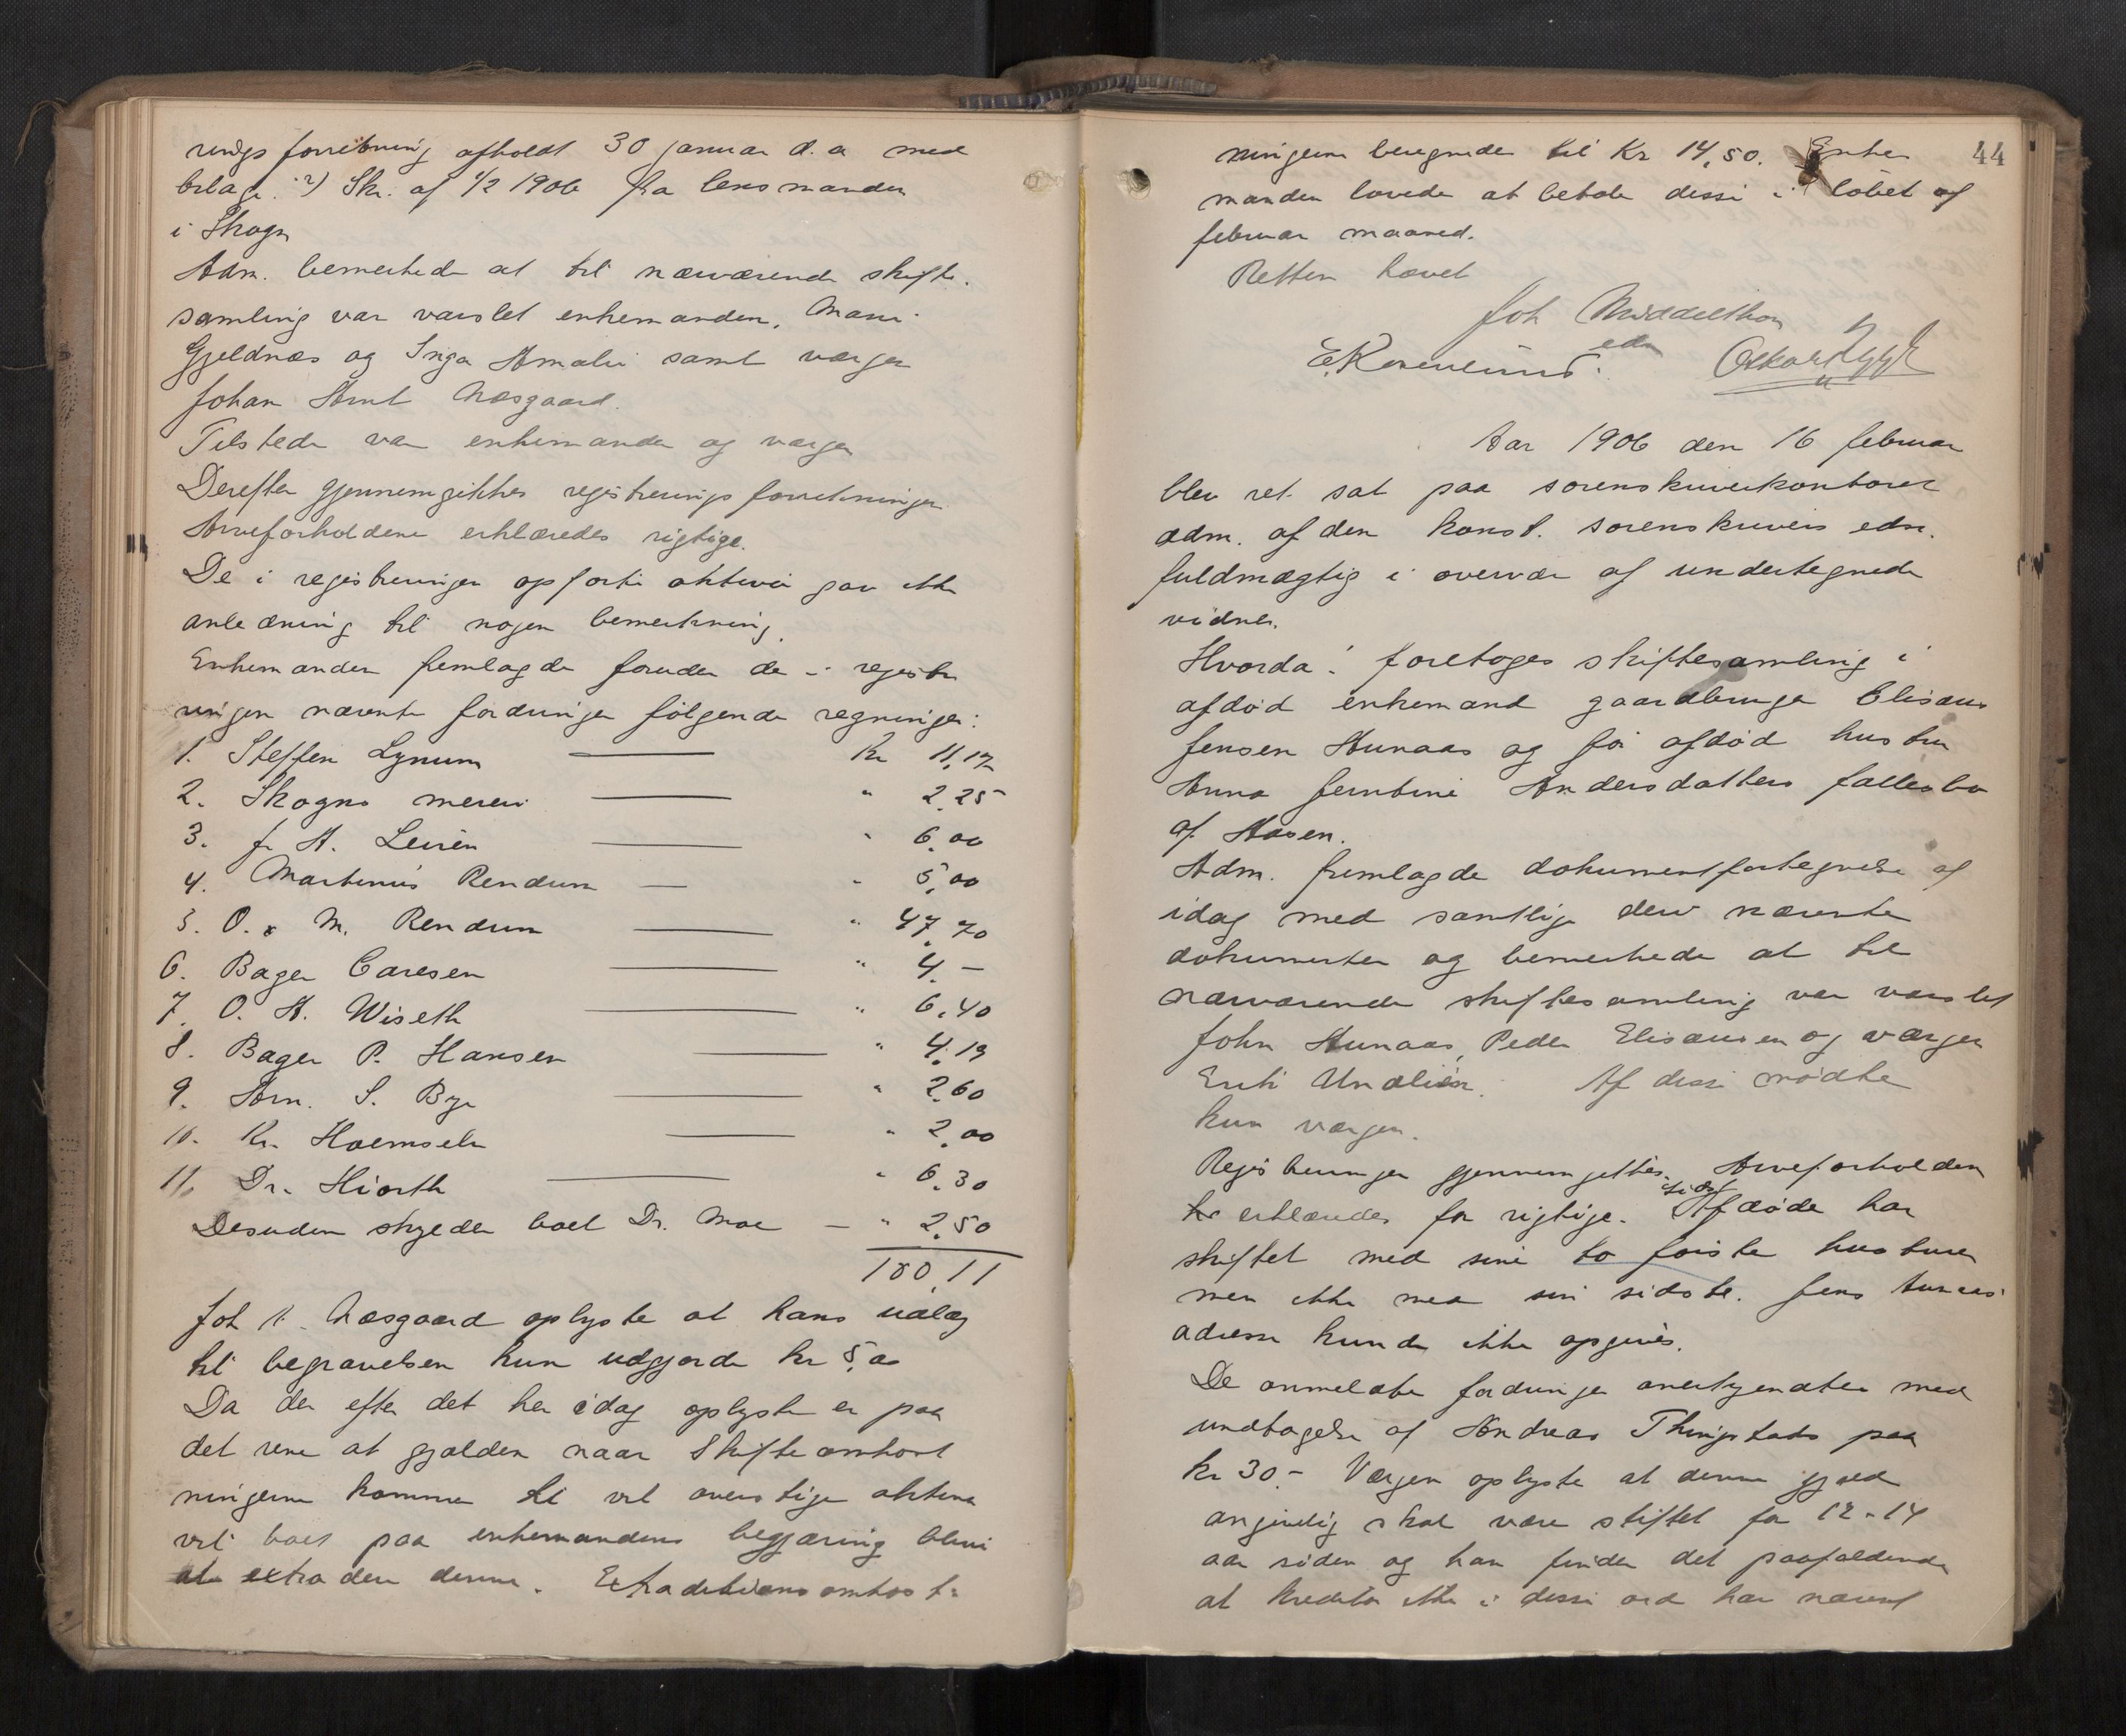 rings forretning afholdt 30 januar d. a med
bilage. 2) Skr. af 1/2 1906 fra lensmanden
i Skogn
Adm. bemerkede at til nærværende skifte-
samling var varslet enkemanden, Marie
Gjeldnæs og Inga Amalie samt værgen
Johan Arnt Næsgaard.
Tilstede var enkemanden og værgen
Derefter gjennemgikkes registreringsforretningen
Arveforholdene erklæredes rigtige.
De i registreringen opførte aktiva gav ikke
anledning til nogen bemerkning.
Enkemanden fremlagde foruden de i registre
ringen nævnte fordringer følgende regninger:
1. Steffen Lynum — Kr 11,17
2. Skogns meieri — " 2,25
3. J. A. Leirèn — " 6,00
4. Martinus Rendum — " 5,00
5. O. & M. Rendum — " 47,70
6. Bager Carlsen — " 4.–
7. O. A. Wiseth — " 6,40
8. Bager P. Hansen — " 4,19
9. Arn. S. Bye — " 2,60
10. Kr. Holmseln — " 2,00
11. Dr. Hiorth — " 6,30
Desuden skylder boet Dr. Moe — " 2,50
100,11
Joh A. Næsgaard oplyste at hans udlæg
til begravelsen kun udgjorde kr 5,00
Da der efter det her idag oplyste er paa
det rene at gjælden naar Skifteomkost
ningerne kommer til vil overstige aktiva
vil boet paa enkemandens begjæring blive
at extradere denne. Extraditionsomkost-
44
ningerne beregnedes til Kr 14,50. Enke
manden lovede at betale disse i løbet af
februar maaned.
Retten hævet
Joh Middelthon
edsv
E. Rosenlund. Oskar Rygh
Aar 1906 den 16 februar
blev ret sat paa sorenskriverkontoret
adm. af den konst. sorenskrivers edsv.
fuldmægtig i overvær af undertegnede
vidner.
Hvorda: foretoges skiftesamling i
afdød enkemand gaardbruger Elisæus
Jensen Aunaas og før afdød hustru
Anna Jerntine Andersdatters fællesbo
af Aasen.
Adm. fremlagde dokumentfortegnelse af
idag med samtlige deri nævnte
dokumenter og bemerkede at til
nærværende skiftesamling var varslet
John Aunaas, Peder Elisæusen og værgen
Erik Undlien. Af disse mødte
kun værgen.
Registreringen gjennemgikkes. Arveforholden
ke erklæredes for rigtige. Sidst Afdøde har
skiftet med sine to første hustruer
men ikke med sin sidste. Jens Aunaas'
adresse kunde ikke opgives.
De anmeldte fordringer anerkjendtes med
undtagelse af Andreas Thingstads paa
kr 30.– Værgen oplyste at denne gjæld
angivelig skal være stiftet for 12-14
aar siden og han finder det paafaldende
at kreditor ikke i disse ord har nævnt